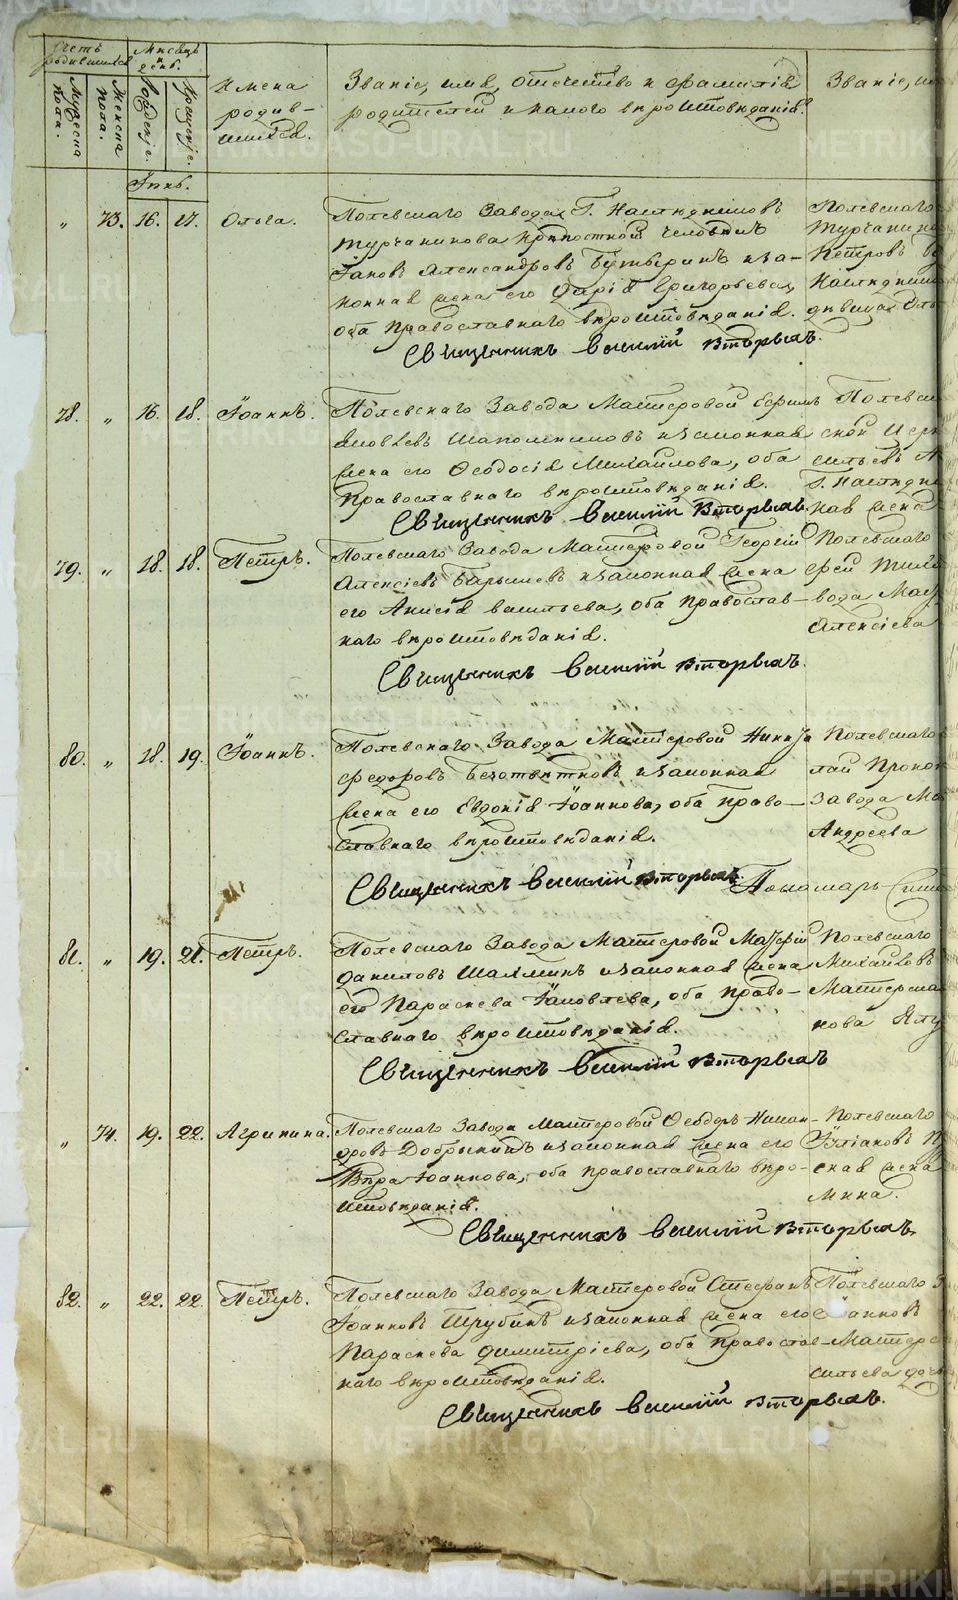 METRIKI.GASO-URAL.RU
Счетъ родившихся
Мѣсяцъ и день.
Мужеска пола.
Женска пола.
Рожденіе.
Крещеніе.
Имена родив-
шихся.
Званіе, имя, отечество и фамилія
родителей и какого вѣроисповѣданія.
Званіе,
Іюнь.
„ 73. 16. 17. Ольга.
Полевскаго Завода Г. Наслѣдниковъ
Турчанинова крѣпостной человѣкъ
Іаковъ Александровъ Бутыринъ и за-
конная жена его Дарія Григорьева,
оба православнаго вѣроисповѣданія.
Священникъ Василій Вторыхъ.
Полевскаго
Петровъ
дѣвица
78. „ 16. 18. Іоаннъ.
Полевскаго Завода Мастеровой
Яковлевъ Шапошниковъ и законная
жена его Ѳеодосія Михайлова, оба
православнаго вѣроисповѣданія.
Священникъ Василій Вторыхъ.
ская жена
79. „ 18. 18. Петръ.
Полевскаго Завода Мастеровой Георгій
Алексіевъ Барышевъ и законная жена
его Анисія Васильева, оба православ-
наго вѣроисповѣданія.
Священникъ Василій Вторыхъ.
Полевскаго
вода
Алексіева
80. „ 18. 19. Іоаннъ.
Полевскаго Завода Мастеровой Никита
Ѳедоровъ Безотвѣтновъ и законная
жена его Евдокія Іоаннова, оба право-
славнаго вѣроисповѣданія.
Священникъ Василій Вторыхъ. Пономарь
Полевскаго
Завода
Андреева
81. „ 19. 21. Петръ.
Полевскаго Завода Мастеровой
Даниловъ Шахминъ и законная жена
его Параскева Іаковлева, оба право-
славнаго вѣроисповѣданія.
Священникъ Василій Вторыхъ
Полевскаго
Михайловъ
„ 74. 19. 22. Агрипина.
Полевскаго Завода Мастеровой Ѳеодоръ Никан-
оровъ Добрынинъ и законная жена его
Вѣра Іоаннова, оба православнаго вѣро-
исповѣданія.
Священникъ Василій Вторыхъ.
Полевскаго
ская жена
82. „ 22. 22. Петръ.
Полевскаго Завода Мастеровой Стефанъ
Іоанновъ Трубинъ и законная жена его
Параскева Димитріева, оба православ-
наго вѣроисповѣданія.
Священникъ Василій Вторыхъ.
Полевскаго
Іоанновъ